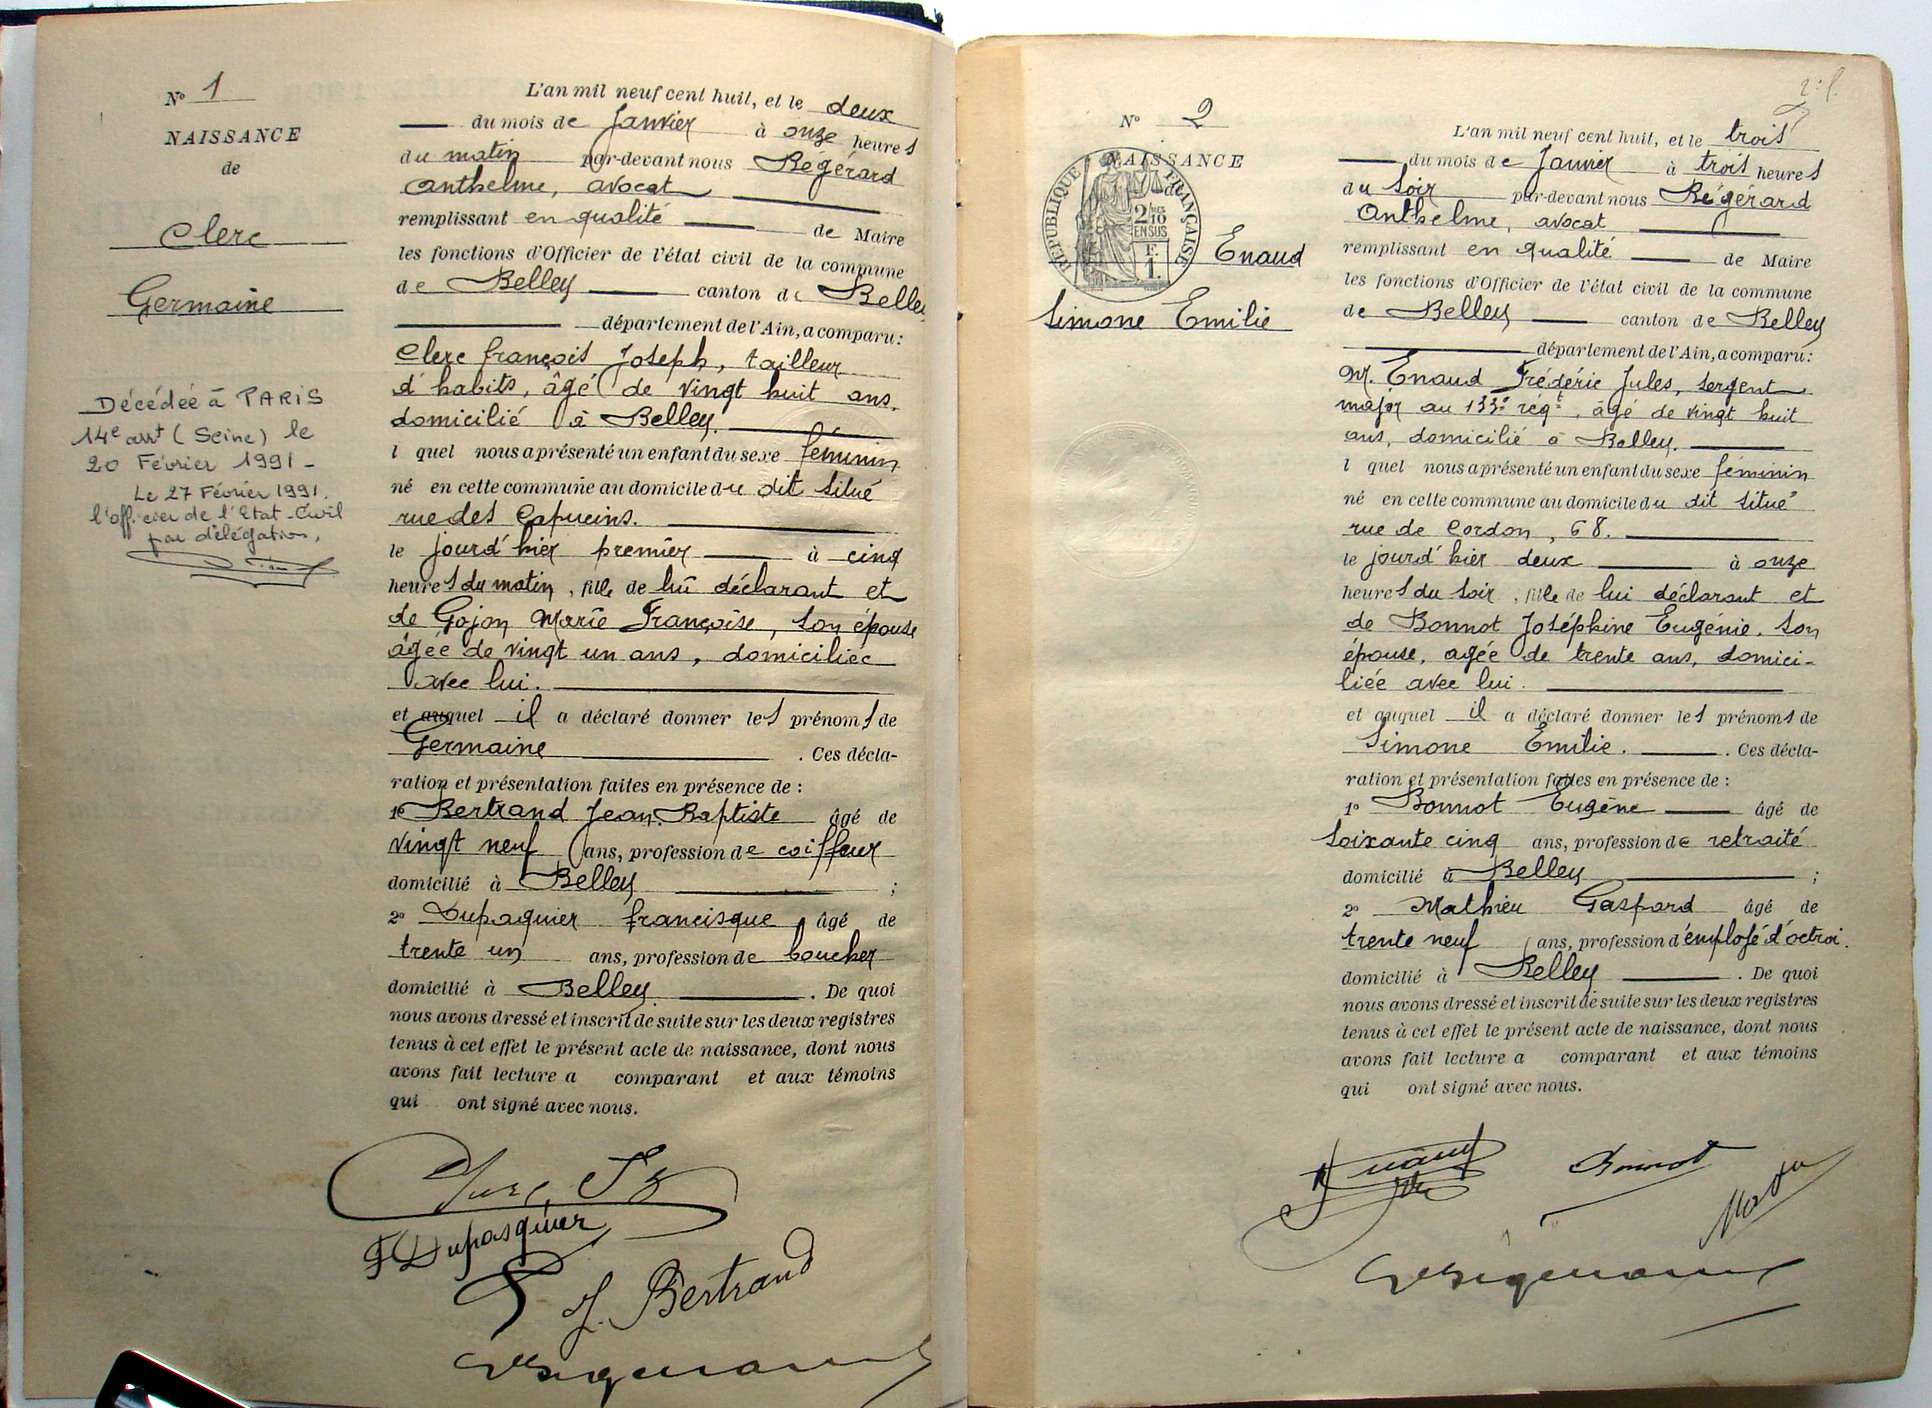 N° 1
NAISSANCE
de
Clerc
Germaine
Décédée à PARIS
14e arrt (Seine) le
20 Février 1991 -
Le 27 Février 1991.
l'officier de l'Etat-Civil
par délégation,
L'an mil neuf cent huit, et le deux
du mois de Janvier à onze heures
du matin par-devant nous Bégérard
Anthelme, avocat
remplissant en qualité de Maire
les fonctions d'Officier de l'état civil de la commune
de Belley canton de Belley
département de l'Ain, a comparu:
Clerc françois Joseph, tailleur
d'habits, âgé de vingt huit ans,
domicilié à Belley.
l quel nous a présenté un enfant du sexe féminin
né en cette commune au domicile du dit situé
rue des Capucins.
le jourd'hier premier à cinq
heures du matin, fille de lui déclarant et
de Gojon Marie Françoise, son épouse
âgée de vingt un ans, domiciliée
avec lui.
et auquel il a déclaré donner les prénoms de
Germaine . Ces décla-
ration et présentation faites en présence de :
1° Bertrand Jean-Baptiste âgé de
vingt neuf ans, profession de coiffeur
domicilié à Belley ;
2° Dupaquier francisque âgé de
trente un ans, profession de boucher
domicilié à Belley. . De quoi
nous avons dressé et inscrit de suite sur les deux registres
tenus à cet effet le présent acte de naissance, dont nous
avons fait lecture a comparant et aux témoins
qui ont signé avec nous.
F Dupasquier
J. Bertrand
N° 2
NAISSANCE
de
RÉPUBLIQUE FRANÇAISE
2/10
EN SUS
F.
1.
Enaud
Simone Emilie
L'an mil neuf cent huit, et le trois
du mois de Janvier à trois heures
du soir par-devant nous Bégérard
Anthelme, avocat
remplissant en qualité de Maire
les fonctions d'Officier de l'état civil de la commune
de Belley canton de Belley
département de l'Ain, a comparu:
M. Enaud Frédéric Jules, sergent
major au 133e régt, âgé de vingt huit
ans, domicilié à Belley.
l quel nous a présenté un enfant du sexe féminin
né en cette commune au domicile du dit situé
rue de Cordon, 68.
le jourd'hier deux à onze
heures du soir, fille de lui déclarant et
de Bonnot Joséphine Eugénie, son
épouse, agée de trente ans, domici-
liée avec lui.
et auquel il a déclaré donner les prénoms de
Simone Emilie. . Ces décla-
ration et présentation faites en présence de :
1° Bonnot Eugène âgé de
soixante cinq ans, profession de retraité
domicilié à Belley ;
2° Mathieu Gaspard âgé de
trente neuf ans, profession d'employé d'octroi.
domicilié à Belley . De quoi
nous avons dressé et inscrit de suite sur les deux registres
tenus à cet effet le présent acte de naissance, dont nous
avons fait lecture a comparant et aux témoins
qui ont signé avec nous.
Bonnot